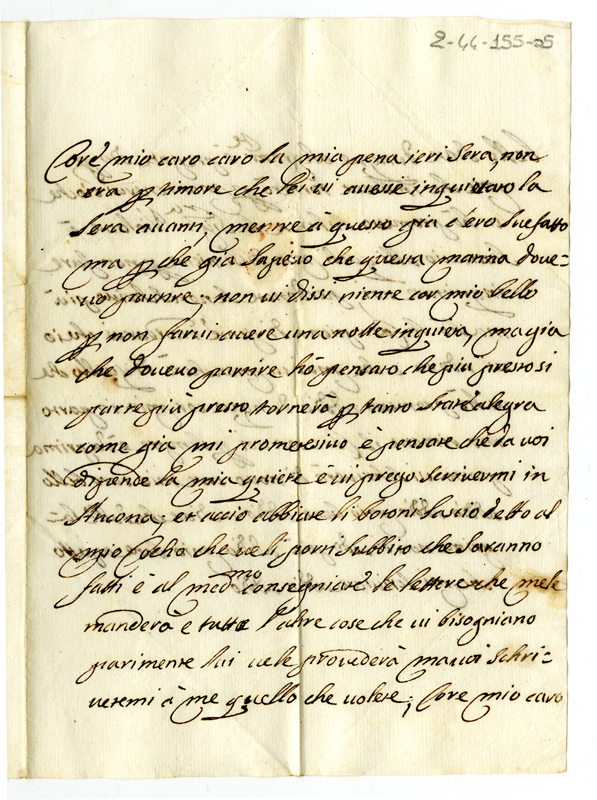 2-44-155-25
Core mio caro caro la mia pena ieri sera, non
era p timore che lei vi avesse inquietato la
sera avanti, mentre à questo già c'ero suefatto
ma p che già sapevo che questa matina dove=
vo partire; non vi dissi niente cor mio bello
p non farvi avere una notte inquieta, ma già
che dovevo partire hò pensato che più presto si
parte più presto tornerò p tanto state alegra
come già mi prometesivo è pensate che da voi
dipende la mia quiete è vi prego scrivermi in
Ancona; et acciò abbiate li botoni lascio detto al
mio Cochio che ve li porti subbito che saranno
fatti è al med.mo consegniate le lettere che mele
manderà e tutte l'altre cose che vi bisogniano
parimente lui vele provederà ma voi schri=
veremi à me quello che volete; Core mio caro